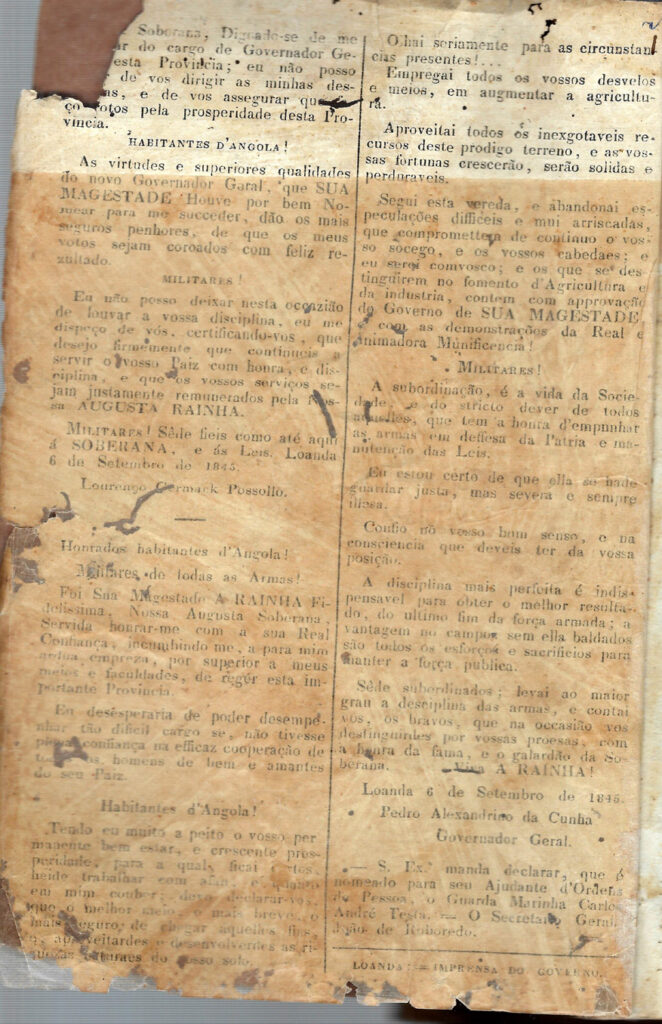 Soberana, Dignado-se de me
ar do cargo de Governador Ge-
esta Provincia; eu não posso
de vos dirigir as minhas des-
as, e de vos assegurar que
ço votos pela prosperidade desta Pro-
vincia.
HABITANTES D'ANGOLA!
As virtudes e superiores qualidades
do novo Governador Garal, que SUA
MAGESTADE Houve por bem No-
mear para me succeder, dão os mais
seguros penhores, de que os meus
votos sejam coroados com feliz re-
zultado.
MILITARES!
Eu não posso deixar nesta occazião
de louvar a vossa disciplina, eu me
dispeço de vós, certificando-vos, que
desejo firmemente que continueis a
servir o vosso Paiz com honra, e dis-
ciplina, e que os vossos serviços se-
jam justamente remunerados pela Nos-
sa AUGUSTA RAINHA.
MILITARES! Sêde fieis como até aqui
á SOBERANA, e ás Leis. Loanda
6 de Setembro de 1845.
Lourenço Germack Possollo.
Honrados habitantes d'Angola!
Militares de todas as Armas!
Foi Sua Magestade A RAINHA Fi-
delissima, Nossa Augusta Soberana,
Servida honrar-me com a sua Real
Confiança, incumbindo me, a para mim
ardua empreza, por superior a meus
meios e faculdades, de regêr esta im-
portante Provincia.
Eu desesperaria de poder desempe-
nhar tão dificil cargo se, não tivesse
plena confiança na efficaz cooperação de
homens de bem e amantes
do seu Paiz.
Habitantes d'Angola!
Tendo eu muito a peito o vosso per
manente bem estar, e crescente pros-
peridade, para a qual, ficai certos,
heide trabalhar com afan, e quanto
em mim couber; devo declarar-vos,
que o melhor meio, o mais breve, o
mais seguro, de chegar aquelles fins,
é, aproveitardes e desenvolverdes as ri-
quezas naturaes do vosso solo.
Olhai seriamente para as circunstan
cias presentes!...
Empregai todos os vossos desvelos
e meios, em augmentar a agricultu-
ra.
Aproveitai todos os inexgotaveis re-
cursos deste prodigo terreno, e as vos-
sas fortunas crescerão, serão solidas e
perduraveis.
Segui esta vereda, e abandonai es-
peculações difficeis e mui arriscadas,
que compromettem de continuo o vos-
so socego, e os vossos cabedaes; e
eu serei comvosco; e os que se des-
tinguirem no fomento d'Agricultura e
da industria, contem com approvação
do Governo de SUA MAGESTADE,
e com as demonstrações da Real e
Animadora Munificencia!
MILITARES!
A subordinação, é a vida da Socie-
dade, e do stricto dever de todos
aquelles, que tem a honra d'empunhar
as armas em deffesa da Patria e ma-
nutenção das Leis.
Eu estou certo de que ella se hade
guardar justa, mas severa e sempre
illesa.
Confio no vosso bom senso, e na
consciencia que deveis ter da vossa
posição.
A disciplina mais perfeita é indis-
pensavel para obter o melhor resulta-
do, do ultimo fim da força armada; a
vantagem no campo; sem ella baldados
são todos os esforços e sacrificios para
manter a força publica.
Sêde subordinados; levai ao maior
grau a desciplina das armas, e contai
vós, os bravos, que na occasião vos
destinguirdes por vossas proesas, com
a honra da fama, e o galardão da So-
berana. Viva A RAINHA!
Loanda 6 de Setembro de 1845.
Pedro Alexandrino da Cunha
Governador Geral.
— S. Ex.ª manda declarar, que é
nomeado para seu Ajudante d'Ordens
de Pessoa, o Guarda Marinha Carlo
André Testa. — O Secretario Geral,
João de Roboredo.
LOANDA: = IMPRENSA DO GOVERNO.